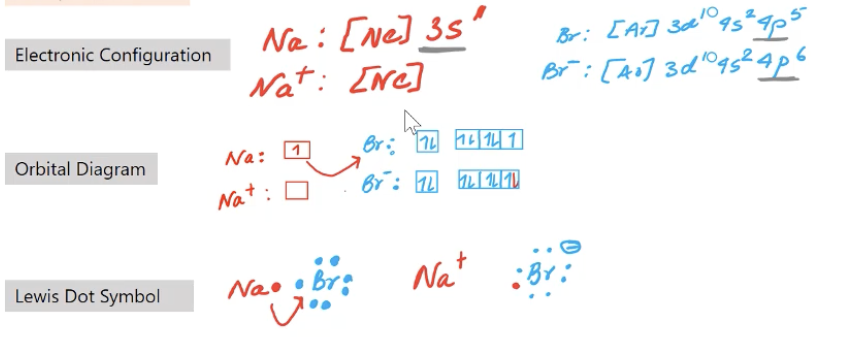 Electronic Configuration
Na : [Ne] 3s¹
Br : [Ar] 3d¹⁰ 4s² 4p⁵
Na⁺ : [Ne]
Br⁻ : [Ar] 3d¹⁰ 4s² 4p⁶
Orbital Diagram
Na : 1
Br : 1L 1L 1L 1
Na⁺ :
Br⁻ : 1L 1L 1L 1L
Lewis Dot Symbol
Na• •Br:
Na⁺
:Br: ⊖